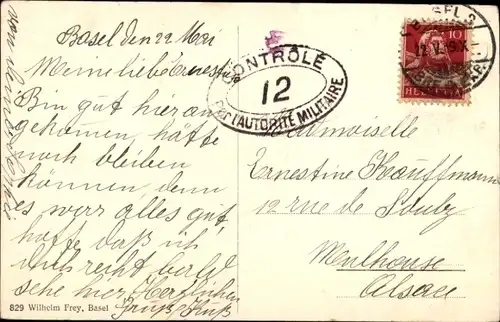 Basel den 22 Mai
Meine liebe Ernestine
Bin gut hier an
gekommen, hätte
noch bleiben
können denn
es war alles gut
hoffe daß ich
dich recht bald
sehe hier Herzlichen
Gruß & Kuß
829 Wilhelm Frey, Basel
CONTRÔLÉ
12
par l'AUTORITÉ MILITAIRE
BASEL 2
10
HELVETIA
Mademoiselle
Ernestine Kauffmann
12 rue de
Mulhouse
Alsace